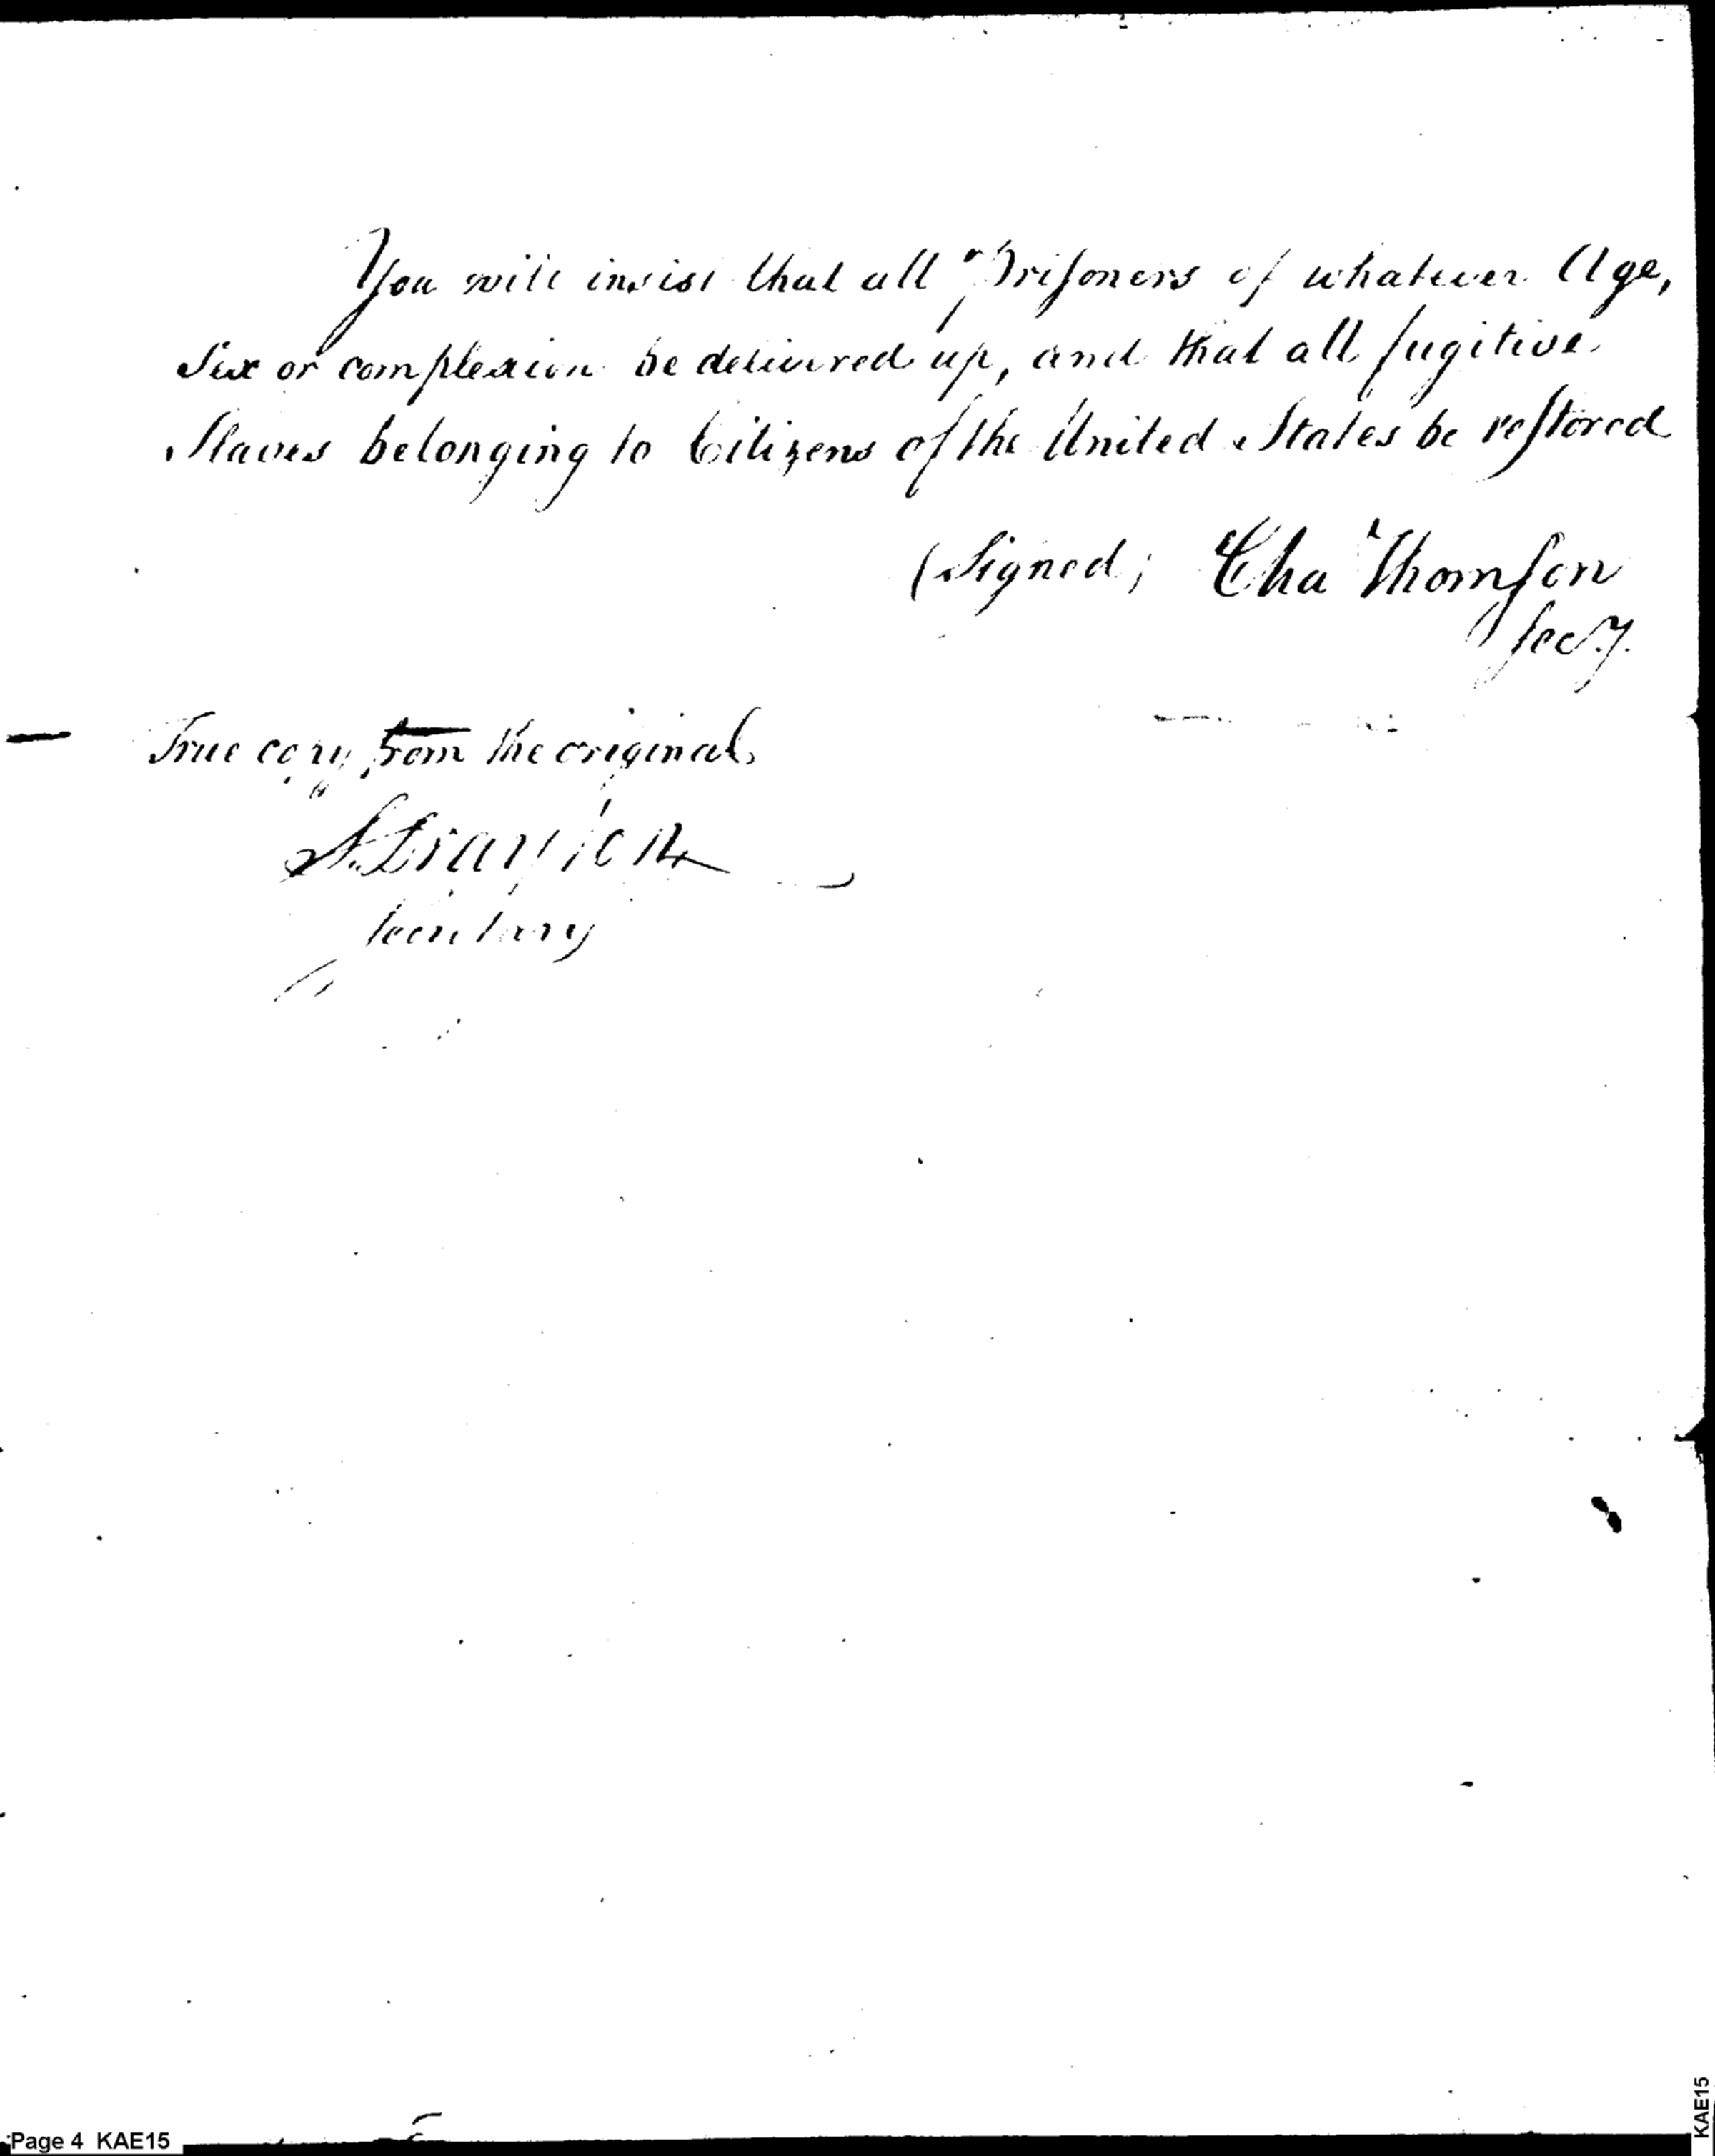 You will insist that all Prisoners of whatever Age,
Sex or complexion be delivered up, and that all fugitive
Slaves belonging to Citizens of the United States be restored
(Signed) Cha Thomson
Secy.
True copy from the original,
S. Drayton
Secretary
Page 4 KAE15
KAE15